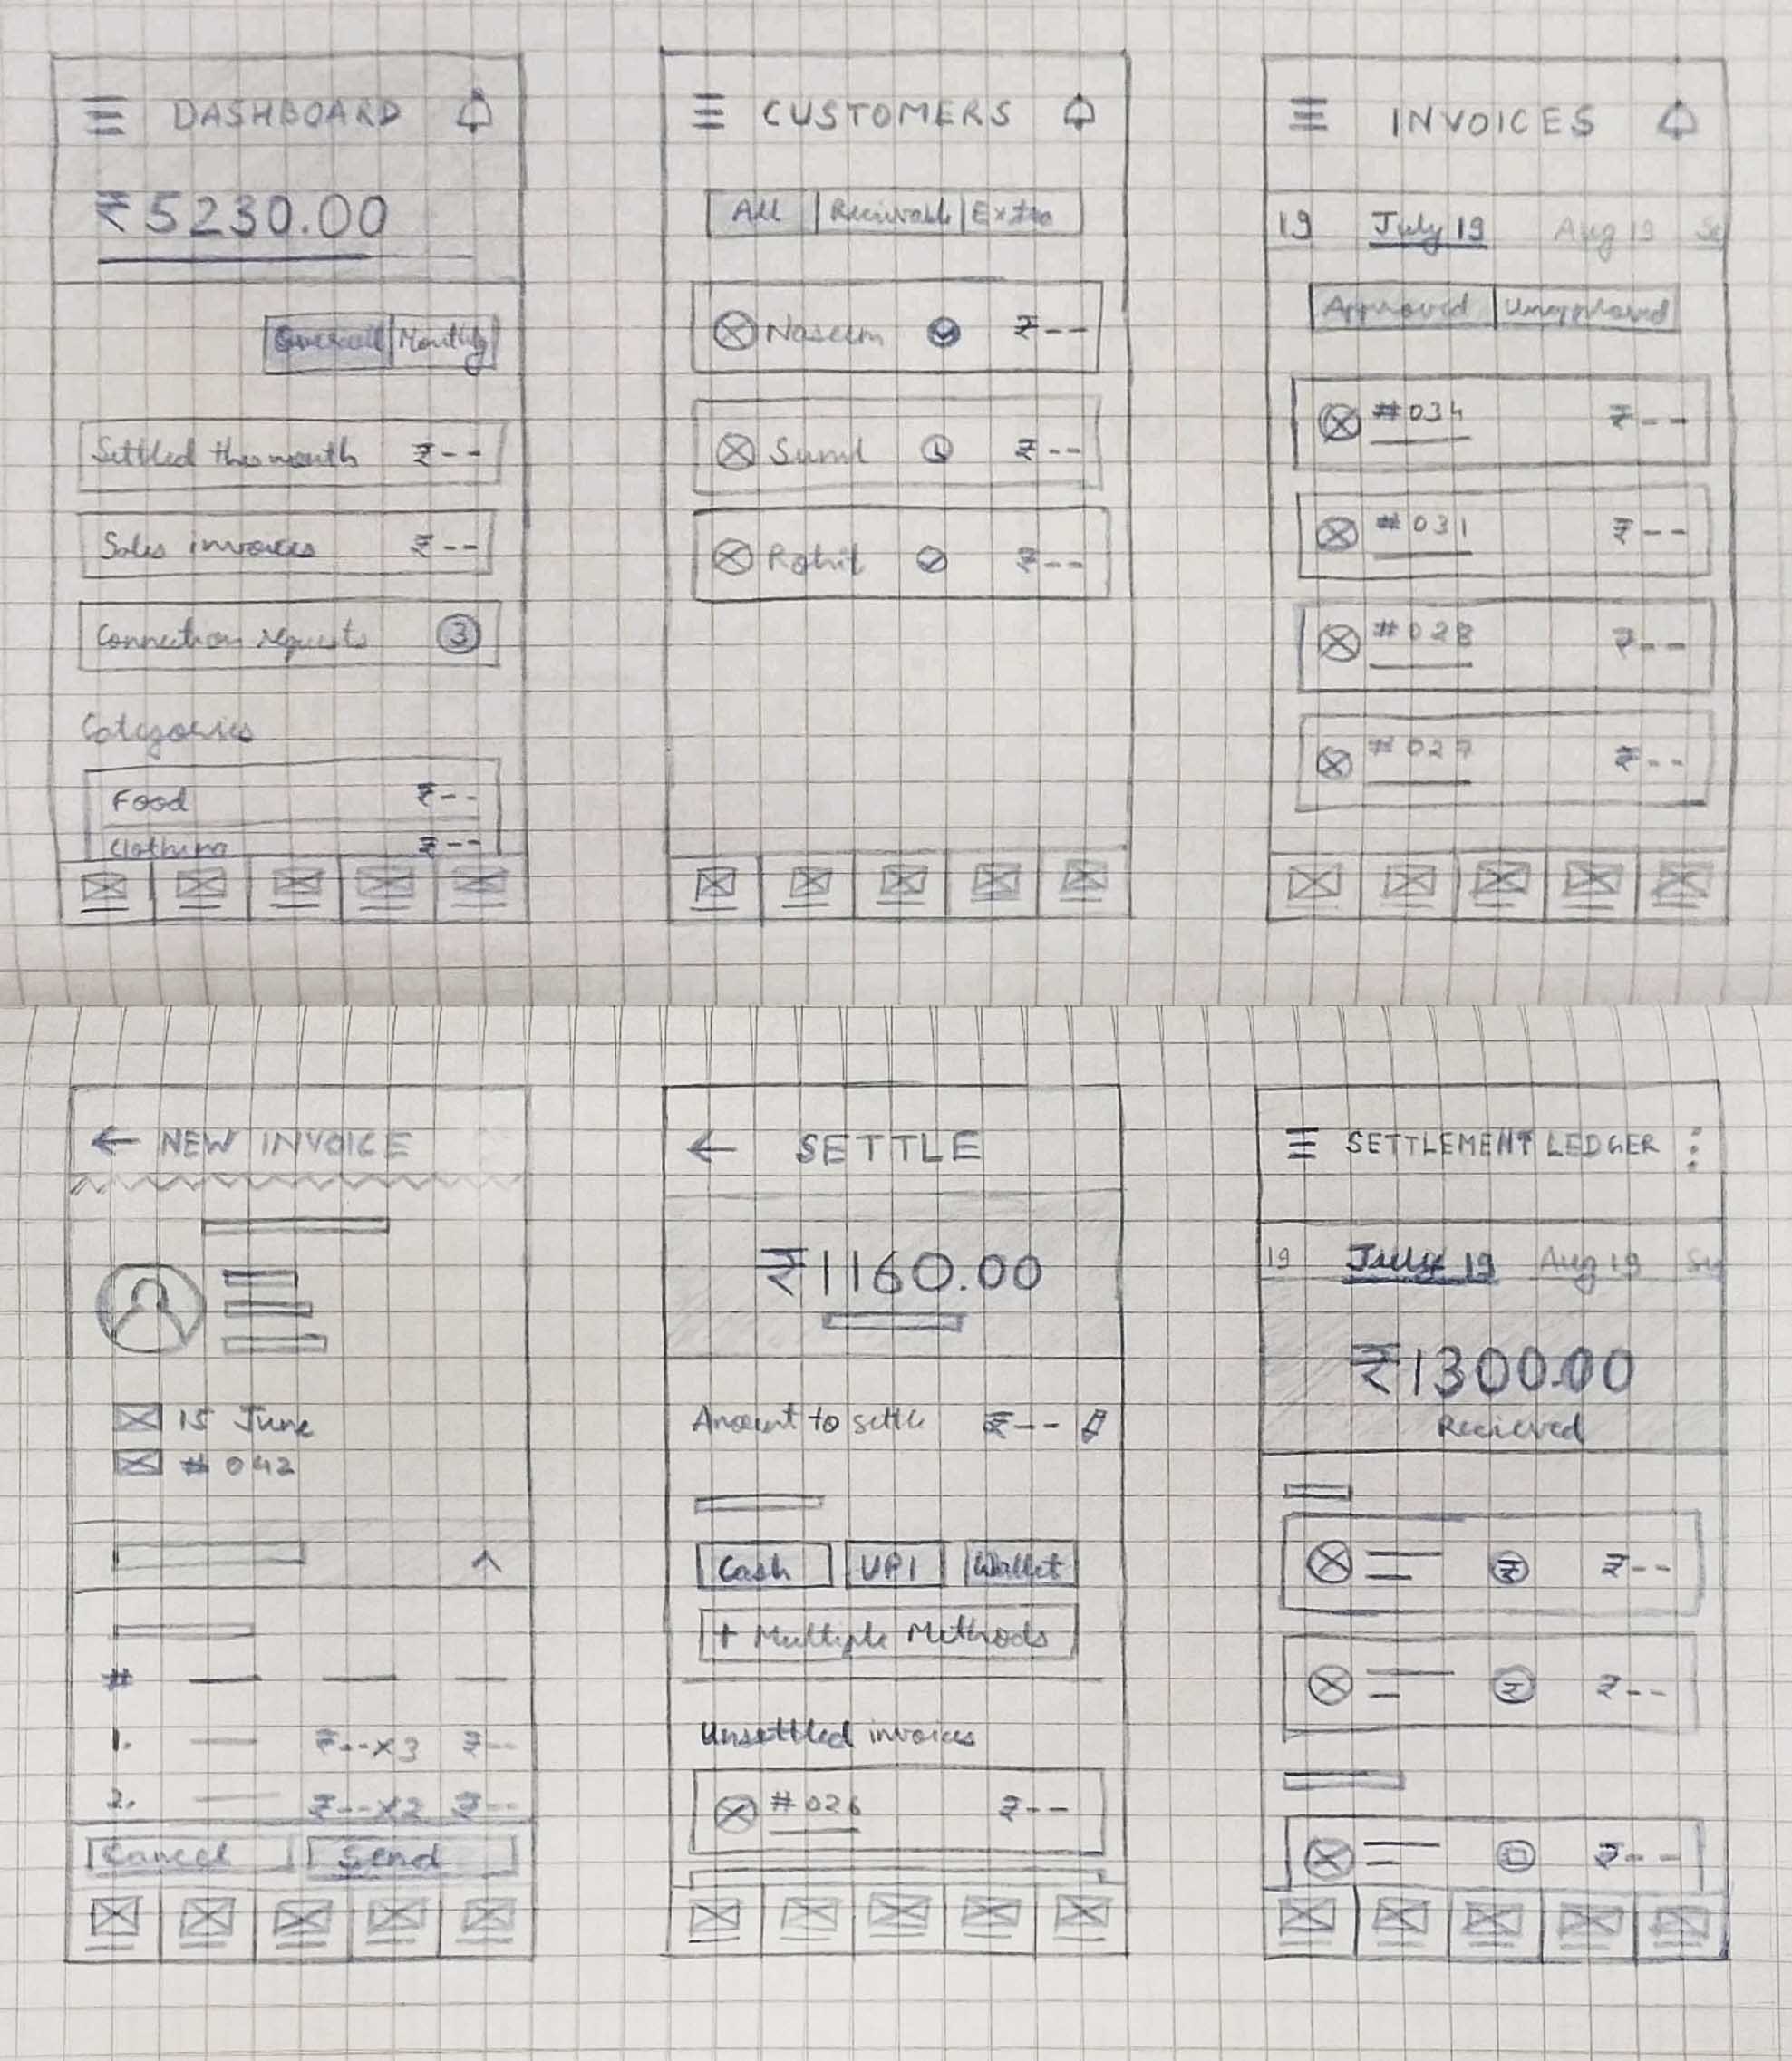 DASHBOARD
₹5230.00
Overall Monthly
Settled this month ₹--
Sales invoices ₹--
Connection requests 3
Categories
Food ₹--
Clothing ₹--
CUSTOMERS
All Recievable Extra
Naseem ₹--
₹--
Rohit ₹--
INVOICES
19 July 19 Aug 19 Se
Approved Unapproved
#034 ₹--
#031 ₹--
#028 ₹--
#027 ₹--
← NEW INVOICE
15 June
#042
#
1. ₹--x3 ₹--
2. ₹--x2 ₹--
Cancel Send
← SETTLE
₹1160.00
Amount to settle ₹--
Cash UPI Wallet
+ Multiple Methods
Unsettled invoices
#026 ₹--
SETTLEMENT LEDGER
19 July 19 Aug 19 Se
₹1300.00
Recieved
₹ ₹--
₹ ₹--
₹--